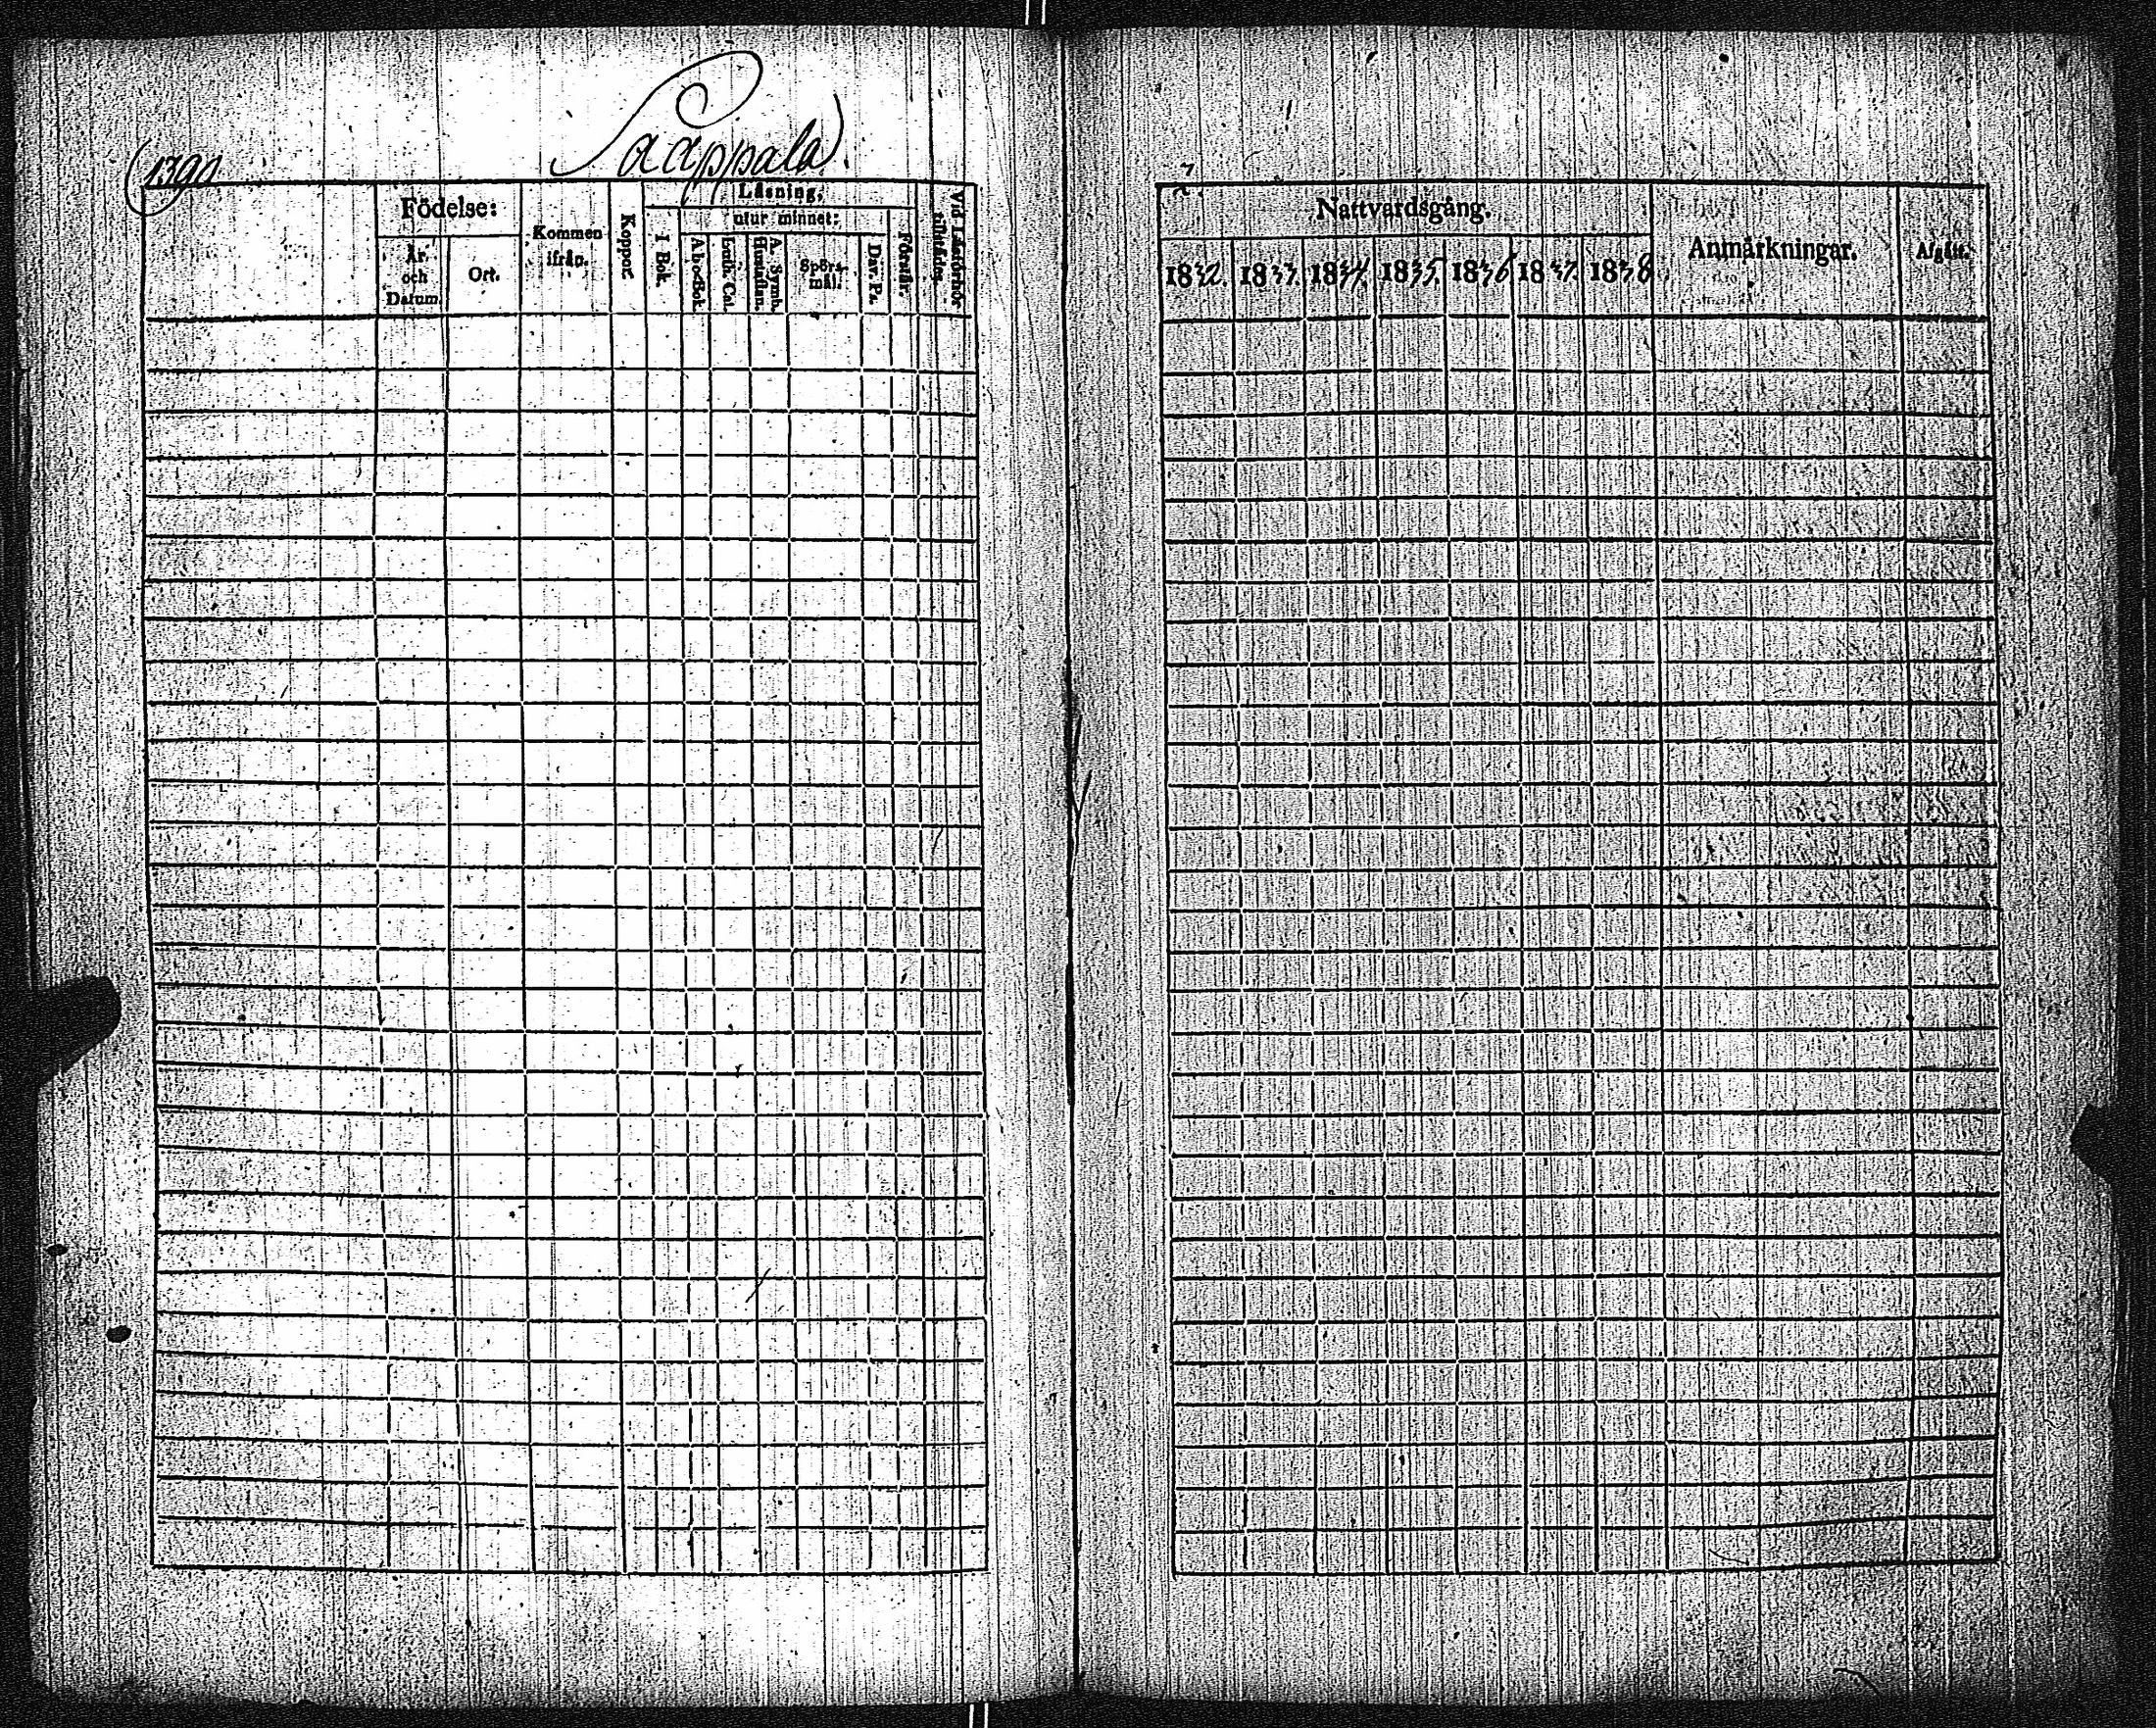 Saappala.
1390
Födelse:
År och Datum.
Ort.
Kommen ifrån.
Koppor.
Läsning,
I Bok.
utur minnet:
Abc-Bok
Luth. Cat.
A. Symb. Hustaflan.
Spörsmål.
Dav. Ps.
Förstår.
Vid Läsförhör tillstädes.
Nattvardsgång.
1832. 1833. 1834. 1835. 1836 1837. 1838
Anmärkningar.
Afgått.